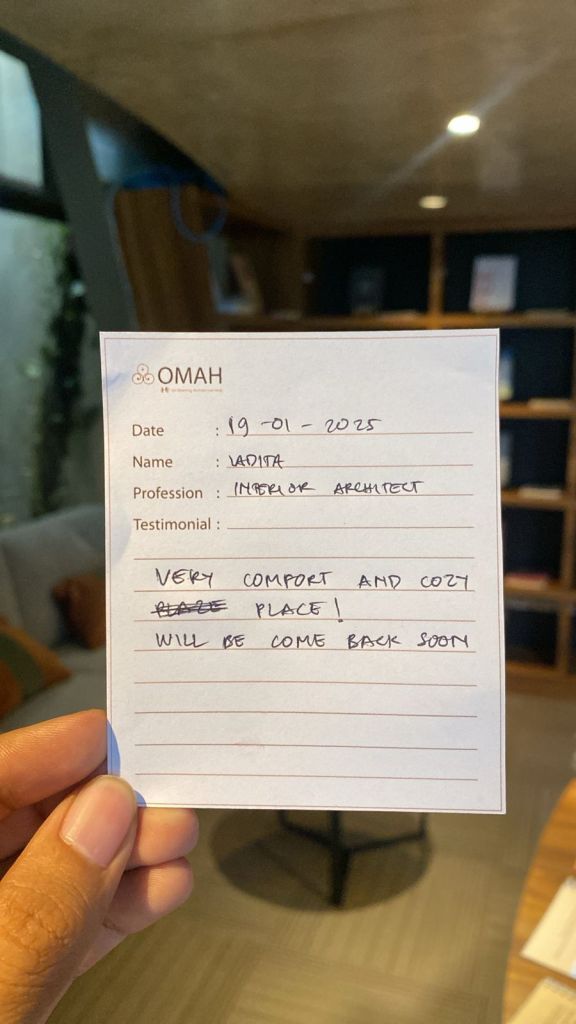 OMAH
Date : 19-01-2025
Name : VADITA
Profession : INTERIOR ARCHITECT
Testimonial :
VERY COMFORT AND COZY
PLACE!
WILL BE COME BACK SOON